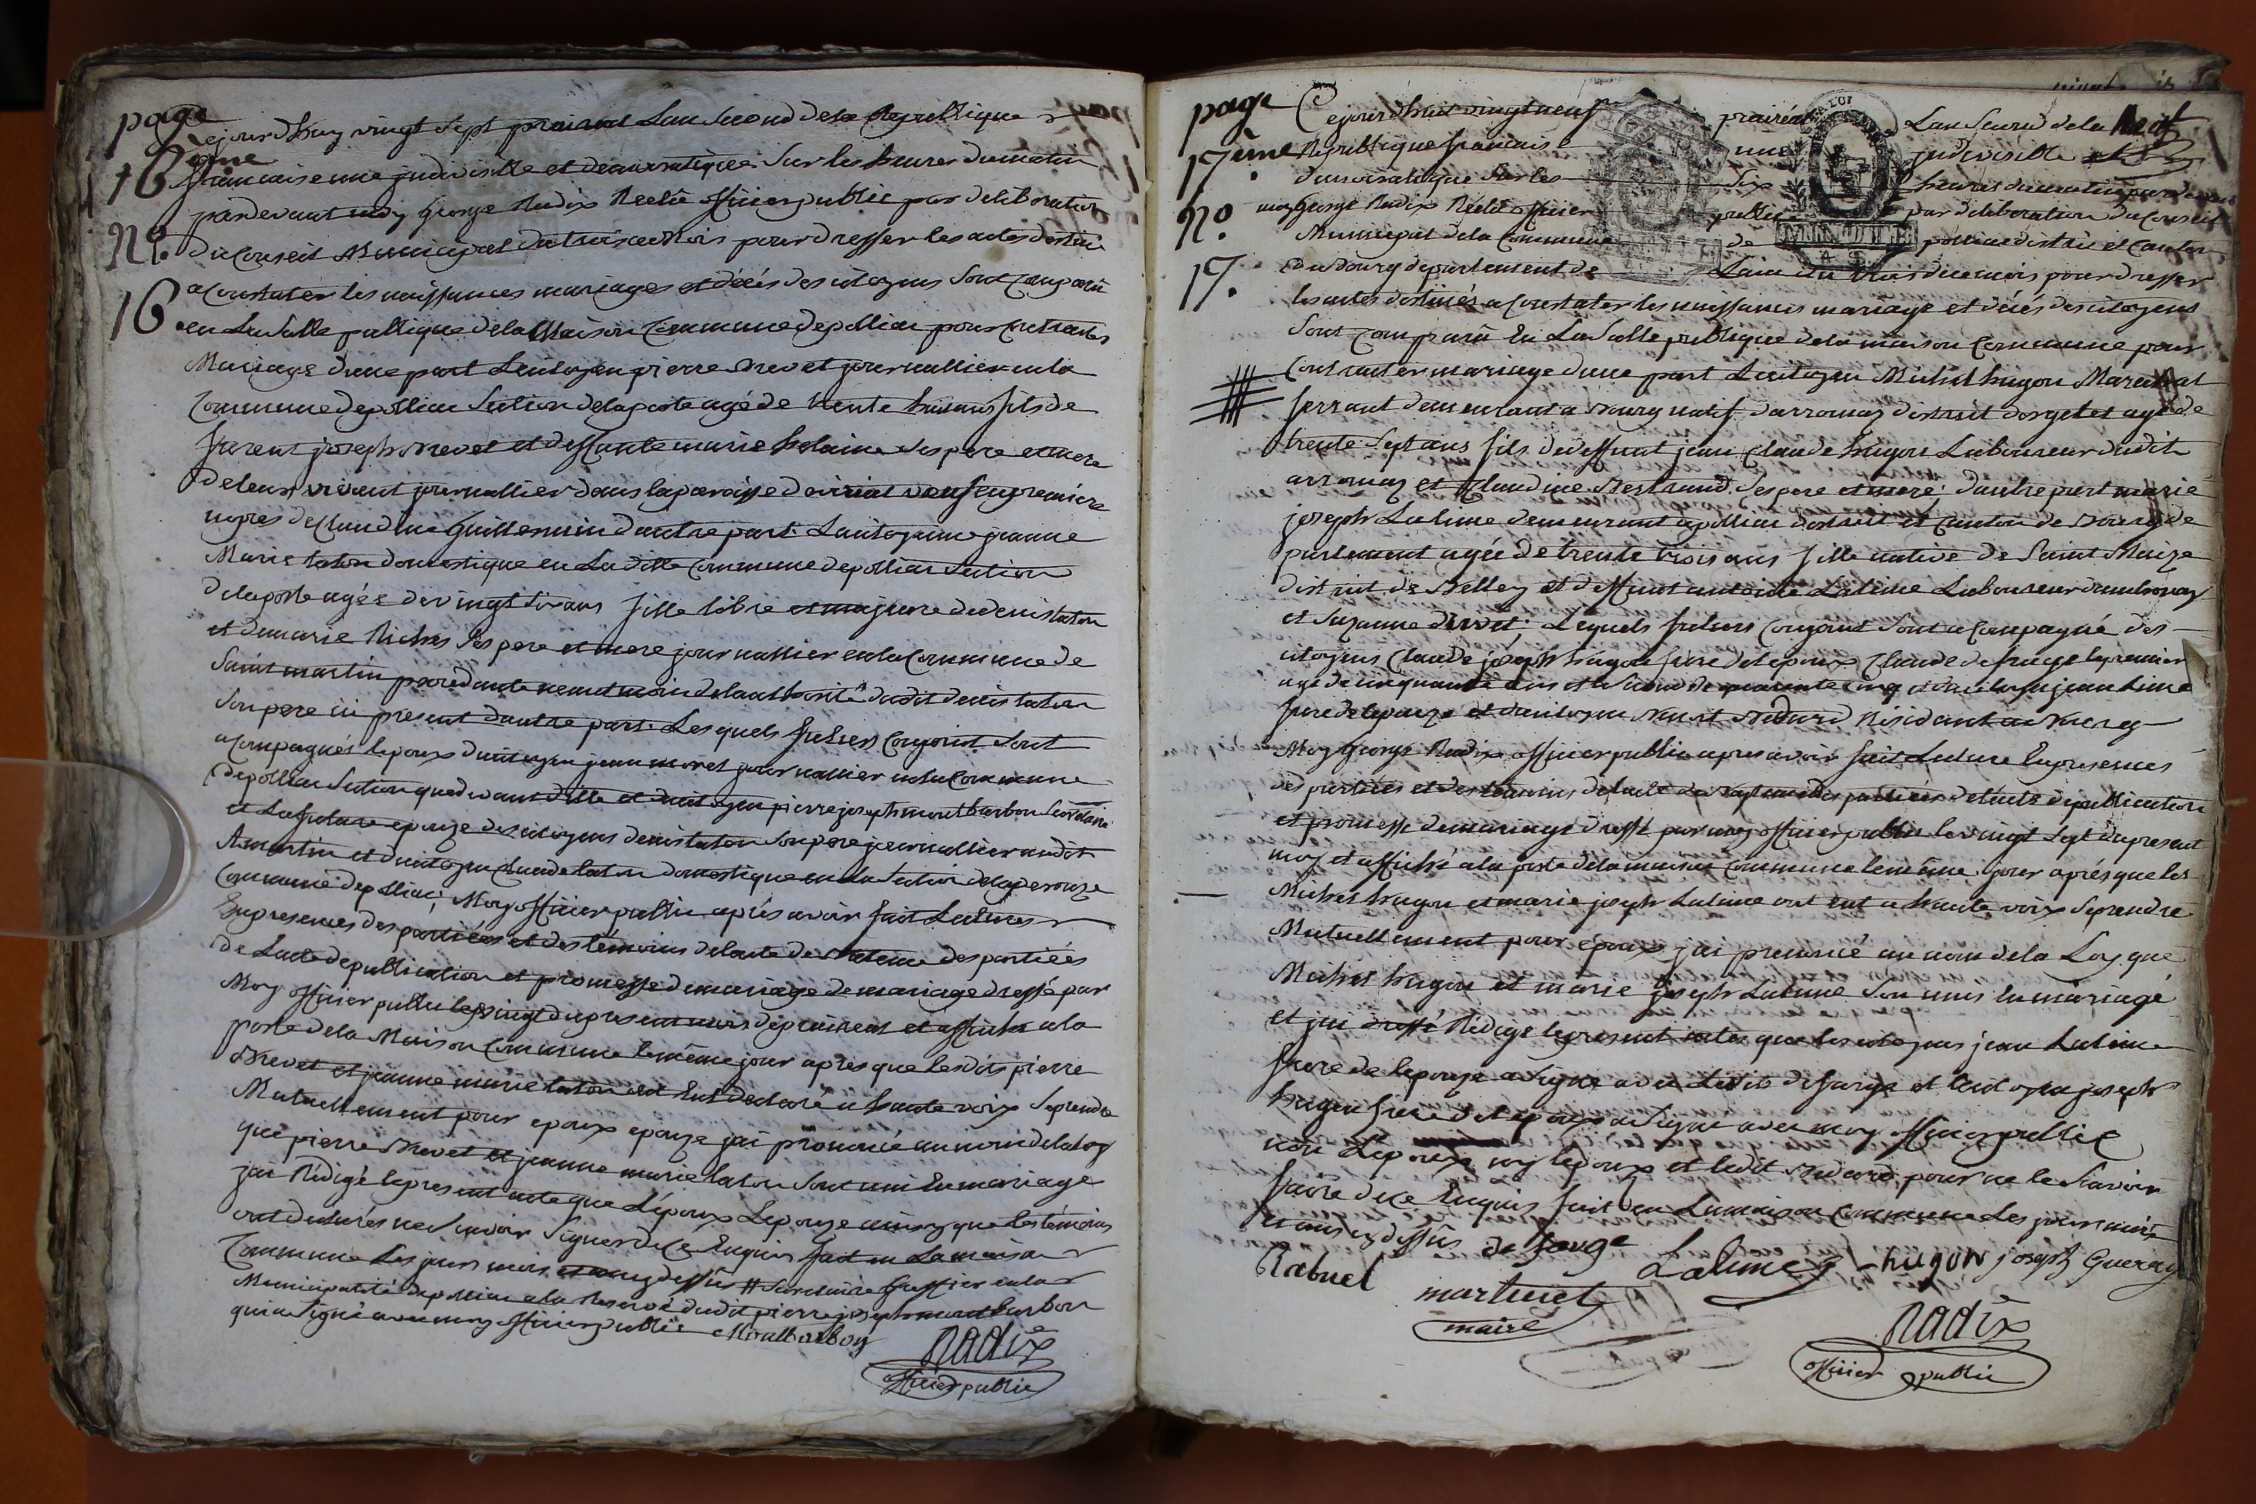 page
16 ème
N°.
16
Cejourdhuy vingt sept prairial Lan Second de la Republique
francaise une indivisible et democratique Sur les heures dumatin
pardevant moy George Radix Reélû officier public par deliberation
du Conseil Municipal du trois pour dresser les actes destiné
a Constater les naissances mariages et décés des citoyens Sont Comparû
en La Salle pullique dela Maison Commune depolliac pour Contracter
Mariage dune part Lecitoyen pierre Brevet journallier en la
Commune depolliac Section delaposte agé de trente huit ans fils de
joseph Brevet et deffunte marie helaine Ses pere et mere
deleur vivant journallier dans laparoisse de viriat veuf en premiere
nopces de Claudine Guillermin dautre part. Lacitoyenne jeanne
Marie taton domestique en La ditte Commune depolliac Section
delaposte agée de vingt Six ans fille libre et majeure de denis taton
et demarie Riches Ses pere et mere journallier en la Commune de
Saint martin procedante neant moin de la authorité dudit denis taton
Son pere ici present dautre part. Les quels futurs Conjoint Sont
acompagnés lepoux du citoyen jean moret journallier en la Commune
depolliac Section et du citoyen pierre joseph montbarbon Secretaire
et La future epouze des citoyens denis taton Son pere journallier audit
St martin et du citoyen Claude taton domestique en La Section de laperouze
Commune depolliac, Moy officier public aprés avoir fait Lectures
En presences des partiées et des témoins delacte de des partiées
de Lacte depublication et promesse de mariage de mariage dressé par
Moy officier public le vingt du present mois de prairial et affiché a la
porte de la Maison Commune lemême jour aprés que lesdits pierre
Brevet et jeanne marie taton ont Eut declaré a haute voix Se prendre
Mutuellement pour epoux epouze jai prononcé au nom de la loy
que pierre Brevet et jeanne marie taton Sont uni En mariage
jai Rédigé le present acte que L'époux Lepouze ainsy que les témoins
ont déclarés ne Scavoir Signer de Ce Enquis fait en La maison
Commune Les jours mois et an cy dessûs # Secretaire Greffier en la
Municipalité depolliac a la Reserve dudit pierre joseph montbarbon
qui a Signé avec moy officier public Montbarbon
Radix
officier public
page
17 ème
N°.
17.
Cejourdhui vingt neuf prairéal Lan Second de la Rep
Republique francaise une indivisible et
democratique Sur les Six heures dumatin pardevant
moy George Radix Réélû officier public par deliberation du Conseil
Municipal de la Commune de polliac district et Canton
du bourg departement de Lain du trois du cemois pour dresser
les actes destinés a Constater les naissances mariage et décés des citoyens
Sont Comparû En La Salle publique dela maison Commune pour
Contracter mariage dune part Lecitoyen Michel hugon Marechal
ferrant demeurant a Bourg natif darromas district dorgelet agé de
trente Sept ans fils de deffunt jean Claude hugon Laboureur dudit
arromas et Claudine Bertrand Ses pere et mere; dautre part marie
joseph Lalime demeurant apolliac district et Canton de Bourg de
partement agée de trente trois ans fille native de Saint
district de Belley et deffunt antoine Lalime Laboureur
et Suzanne; Lequels futurs Conjoint Sont acompagné des
citoyens Claude joseph hugon frere delepoux Claude defarge lepremier
agé de cinquante ans et le Second de quarante cinq et du citoyen jean lime
frere delepouze et du citoyen Benoit Bedard Résidant a Bourg
Moy George Radix officier public apres avoir fait Lecture En presences
des partiées et des temoins delacte de des partiées delacte de publication
et promesse de mariage dressé par moy officier public le vingt Sept du present
moy et affiché a la porte dela maison Commune lemême jour aprés que les
Michel hugon et marie joseph Lalime ont eut a haute voix Seprendre
Mutuellement pour époux jai prononcé au nom dela Loy que
Michel hugon et marie joseph Lalime Son unis En mariage
et jai dressé Rédigé lepresent acte que les citoyens jean Lalime
frere de lepouze a Signé avec Ledit defarge et lecitoyen joseph
hugon frere delepoux a Signé avec moy officier public
non Lepoux ny lepoux et ledit Bedard pour ne le Scavoir
faire de ce Enquis fait En Lamaison Commune Les jours mois
et ans cy dessûs de farge Lalime hugon joseph Gueray
Rabuel martinet
maire
Radix
officier public